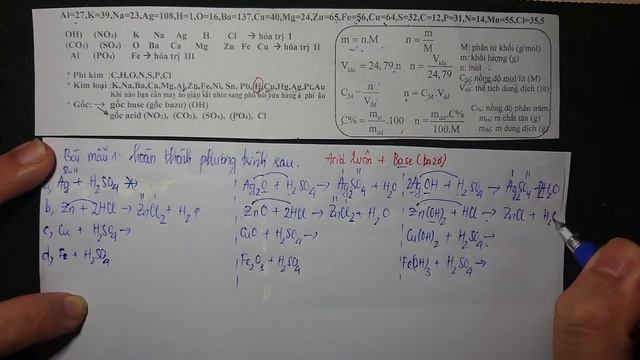 Al=27,K=39,Na=23,Ag=108,H=1,O=16,Ba=137,Ca=40,Mg=24,Zn=65,Fe=56,Cu=64,S=32,C=12,P=31,N=14,Mn=55,Cl=35,5
OH) (NO₃) K Na Ag H Cl → hóa trị I
(CO₃) (SO₄) O Ba Ca Mg Zn Fe Cu → hóa trị II
Al (PO₄) Fe → hóa trị III
* Phi kim :C,H,O,N,S,P,Cl
* Kim loại :K,Na,Ba,Ca,Mg,Al,Zn,Fe,Ni, Sn, Pb,H,Cu,Hg,Ag,Pt,Au
Khi nào bạn cần may áo giáp sắt nhìn sang phố hỏi cửa hàng á phi âu
* Gốc: → gốc base (gốc bazơ) (OH)
gốc acid (NO₃), (CO₃), (SO₄), (PO₄), Cl
m = n.M n = m/M
Vkhí = 24,79.n n = Vkhí/24,79
CM = n/Vdd n = CM.Vdd
C% = mct/mdd.100 n = mdd.C%/100.M
M: phân tử khối (g/mol)
m: khối lượng (g)
n: mol
CM: nồng độ mol/lít (M)
Vdd: thể tích dung dịch (lít)
C%: nồng độ phần trăm.
mct: m chất tan (g)
mdd: m dung dịch (g)
Bài mẫu 1: hoàn thành phương trình sau. Acid luôn + Base (bazơ)
a, Ag + H₂SO₄ Ag₂O + H₂SO₄ → Ag₂SO₄ + H₂O 2AgOH + H₂SO₄ → Ag₂SO₄ + 2H₂O
b, Zn + 2HCl → ZnCl₂ + H₂↑ ZnO + 2HCl → ZnCl₂ + H₂O Zn(OH)₂ + HCl → ZnCl + H₂O
c, Cu + H₂SO₄ → CuO + H₂SO₄ → Cu(OH)₂ + H₂SO₄ →
d, Fe + H₂SO₄ Fe₂O₃ + H₂SO₄ Fe(OH)₃ + H₂SO₄ →